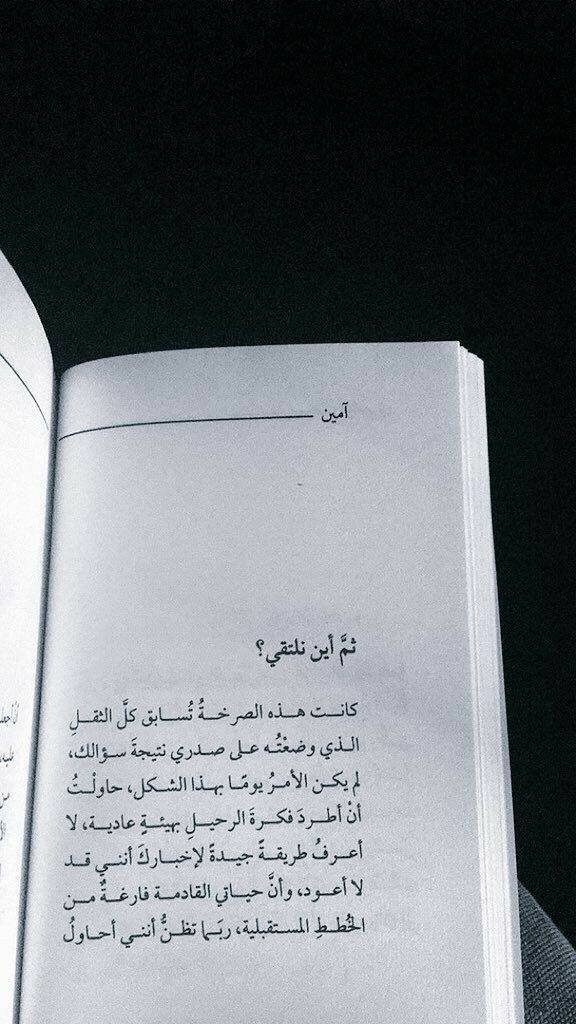 آمين
ثمَّ أين نلتقي؟
كانت هذه الصرخةُ تُسابق كلَّ الثقلِ
الذي وضعْتُه على صدري نتيجةَ سؤالك،
لم يكن الأمرُ يومًا بهذا الشكل، حاولْتُ
أنْ أطردَ فكرةَ الرحيلِ بهيئةٍ عادية، لا
أعرفُ طريقةً جيدةً لإخباركَ أنني قد
لا أعود، وأنَّ حياتي القادمة فارغةٌ من
الخُططِ المستقبلية، ربَما تظنُّ أنني أحاولُ